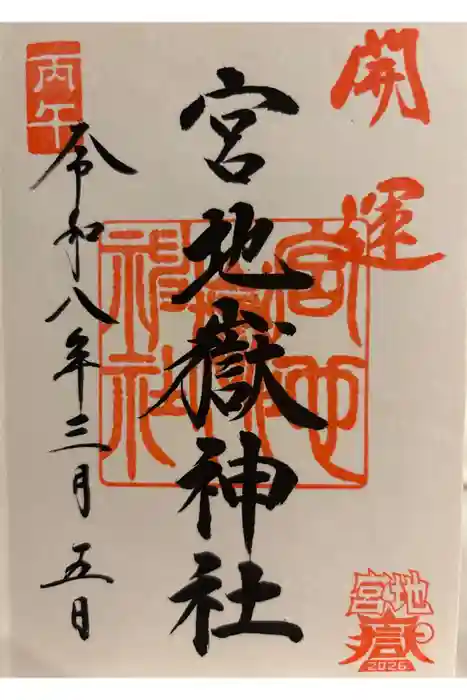 開運
宮地嶽神社
宮地嶽神社
丙午
令和八年三月五日
宮地嶽
2026